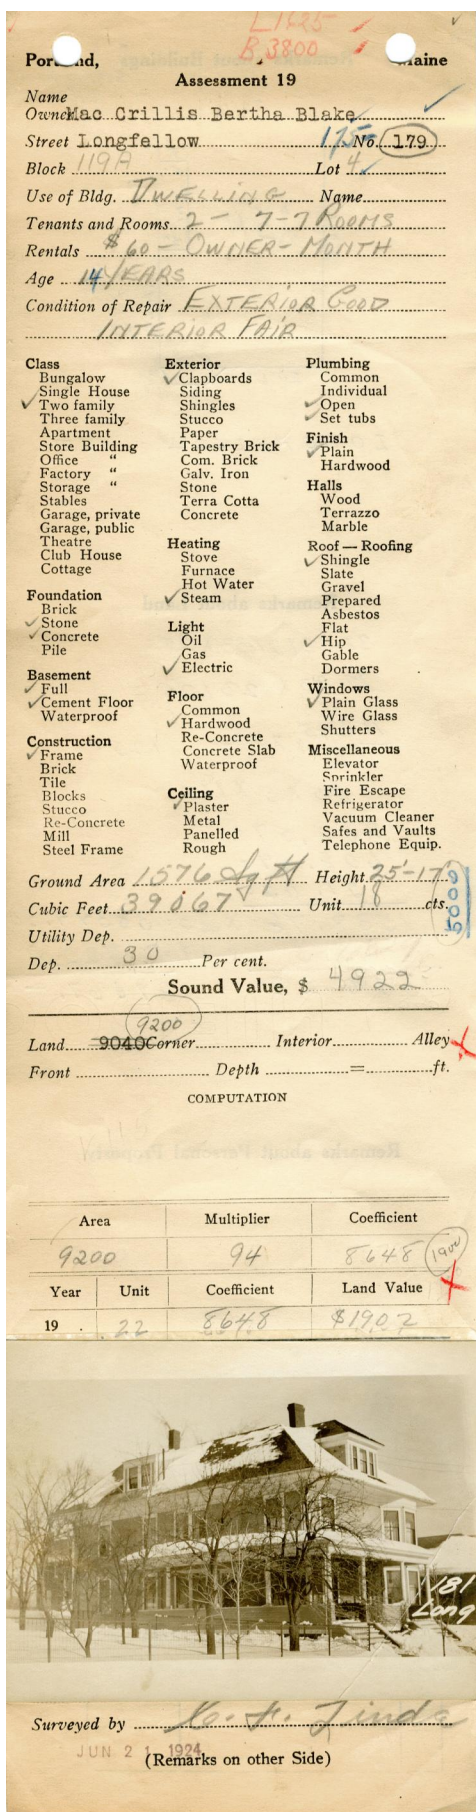 L 1625
B 3800
Portland, Maine
Assessment 19
Name
Owner Mac Crillis Bertha Blake
Street Longfellow 175- No. 179
Block 119A Lot 4
Use of Bldg. DWELLING Name
Tenants and Rooms 2 - 7-7 ROOMS
Rentals $60 - OWNER - MONTH
Age 14 YEARS
Condition of Repair EXTERIOR GOOD
INTERIOR FAIR
Class
Bungalow
✓ Single House
✓ Two family
Three family
Apartment
Store Building
Office "
Factory "
Storage "
Stables
Garage, private
Garage, public
Theatre
Club House
Cottage
Foundation
Brick
✓ Stone
✓ Concrete
Pile
Basement
✓ Full
✓ Cement Floor
Waterproof
Construction
✓ Frame
Brick
Tile
Blocks
Stucco
Re-Concrete
Mill
Steel Frame
Exterior
✓ Clapboards
Siding
Shingles
Stucco
Paper
Tapestry Brick
Com. Brick
Galv. Iron
Stone
Terra Cotta
Concrete
Heating
Stove
Furnace
Hot Water
✓ Steam
Light
Oil
Gas
✓ Electric
Floor
Common
✓ Hardwood
Re-Concrete
Concrete Slab
Waterproof
Ceiling
✓ Plaster
Metal
Panelled
Rough
Plumbing
Common
Individual
✓ Open
✓ Set tubs
Finish
✓ Plain
Hardwood
Halls
Wood
Terrazzo
Marble
Roof — Roofing
✓ Shingle
Slate
Gravel
Prepared
Asbestos
Flat
✓ Hip
Gable
Dormers
Windows
✓ Plain Glass
Wire Glass
Shutters
Miscellaneous
Elevator
Sprinkler
Fire Escape
Refrigerator
Vacuum Cleaner
Safes and Vaults
Telephone Equip.
Ground Area 1576 Sq Ft Height 25'-17
Cubic Feet 39067 Unit 18 cts.
5000
Utility Dep.
Dep. 30 Per cent.
Sound Value, $ 4922
9200
Land 9040 Corner Interior Alley
Front Depth = ft.
COMPUTATION
Area Multiplier Coefficient
9200 94 8648 1900
Year Unit Coefficient Land Value
19 22 8648 $1902
181
Long
Surveyed by
JUN 21 1924
(Remarks on other Side)